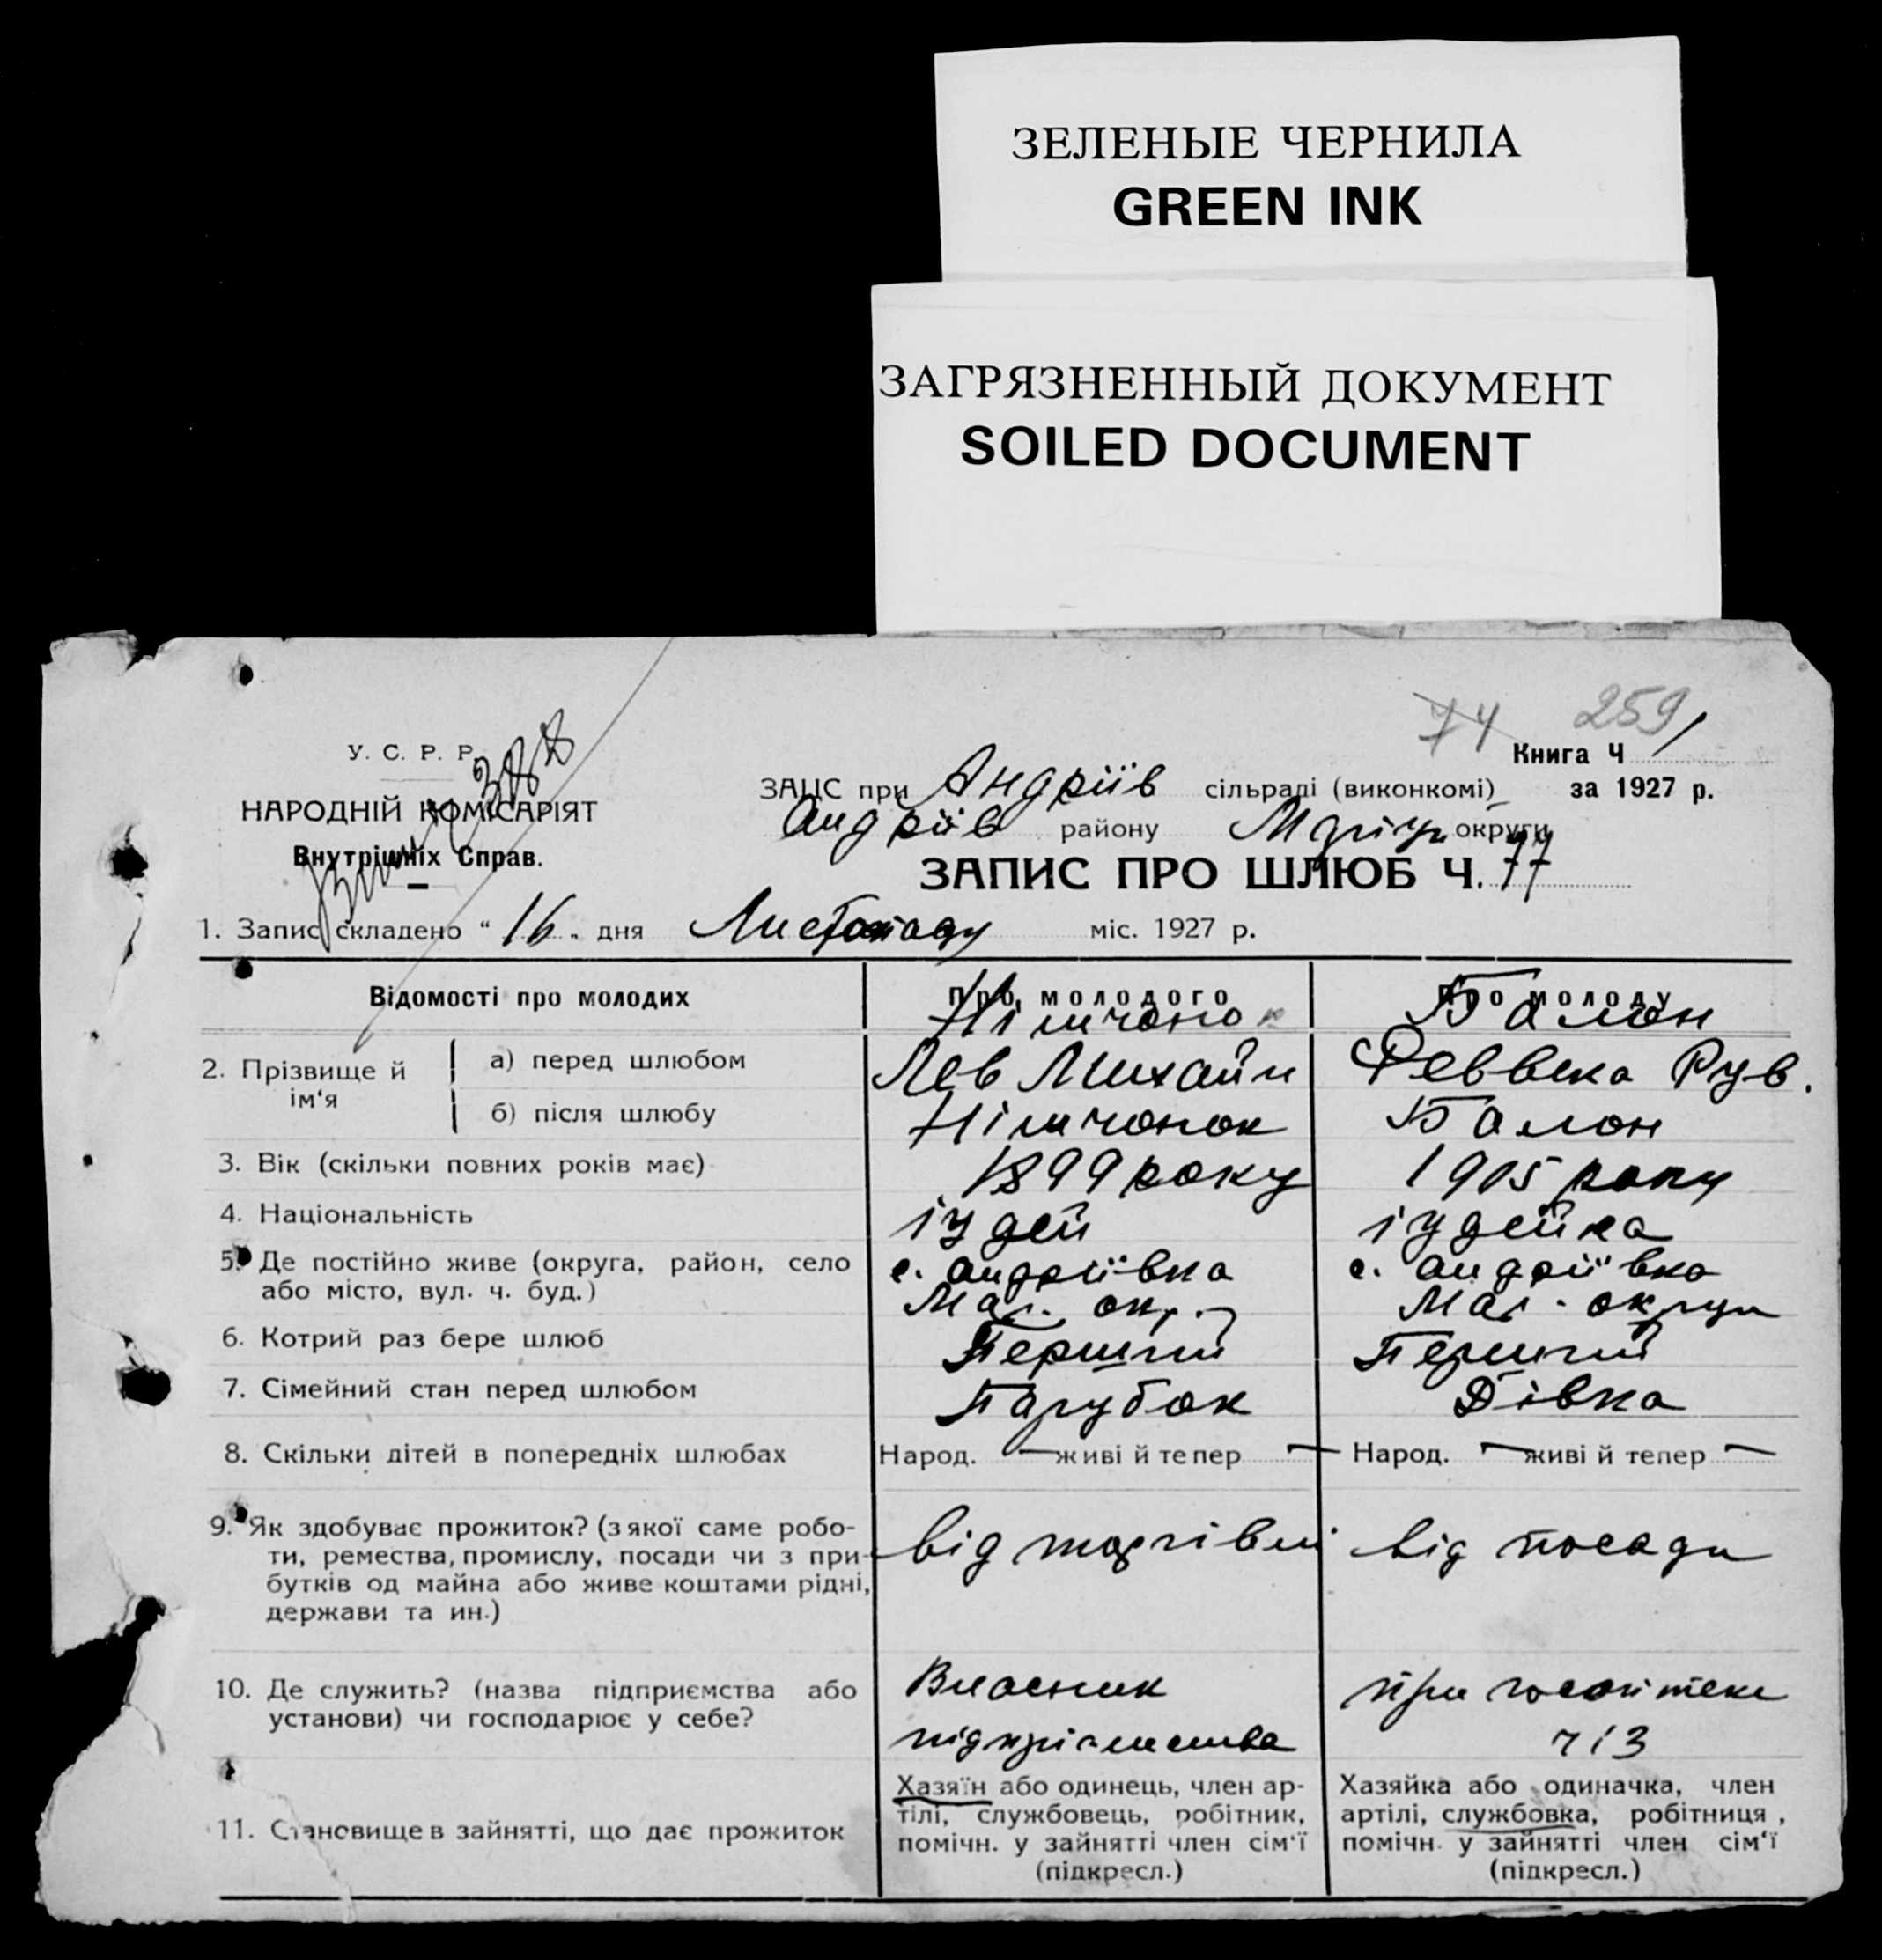 ЗЕЛЕНЫЕ ЧЕРНИЛА
GREEN INK
ЗАГРЯЗНЕННЫЙ ДОКУМЕНТ
SOILED DOCUMENT
74 259
У. С. Р. Р.
НАРОДНІЙ КОМІСАРІЯТ
Внутрішніх Справ.
Книга Ч 1
ЗАЦС при Андріїв сільраді (виконкомі) за 1927 р.
Андріїв району округи
ЗАПИС ПРО ШЛЮБ Ч. 77
1. Запис складено "16" дня Листопаду міс. 1927 р.
Відомості про молодих Про молодого Про молоду
Німчонок Балон
2. Прізвище й ім‘я
а) перед шлюбом Лев Михайл Реввека Рув.
б) після шлюбу Німчонок Балон
3. Вік (скільки повних років має) 1899 року 1905 року
4. Національність іудей іудейка
5. Де постійно живе (округа, район, село с. Андріївка с. Андріївка
або місто, вул. ч. буд.) Мар. окр. Мар. округи
6. Котрий раз бере шлюб Перший Перший
7. Сімейний стан перед шлюбом Парубок Дівка
8. Скільки дітей в попередніх шлюбах Народ. — живі й тепер — Народ. — живі й тепер —
9. Як здобуває прожиток? (з якої саме робо-
ти, ремества, промислу, посади чи з при- від торгівлі від посади
бутків од майна або живе коштами рідні,
держави та ин.)
10. Де служить? (назва підприємства або Власник при
установи) чи господарює у себе? підприємства
11. Становище в зайнятті, що дає прожиток
Хазяїн або одинець, член ар-
тілі, службовець, робітник,
помічн. у зайнятті член сім‘ї
(підкресл.)
Хазяйка або одиначка, член
артілі, службовка, робітниця,
помічн. у зайнятті член сім‘ї
(підкресл.)